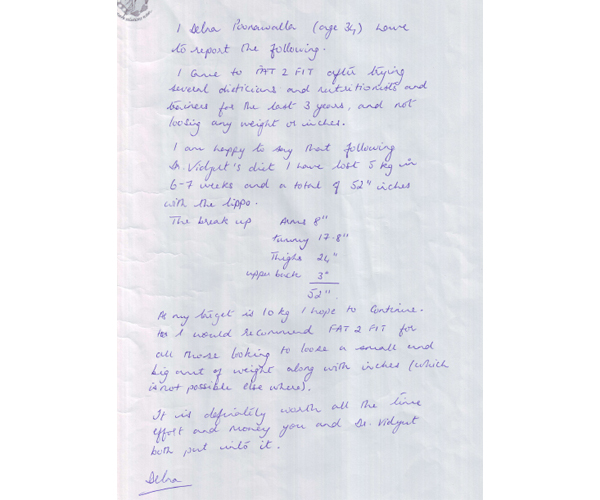 I Delna Poonawalla (age 34) have
to report the following.
I came to FAT 2 FIT after trying
several dieticians and nutritionists and
trainers for the last 3 years, and not
loosing any weight or inches.
I am happy to say that following
Dr. Vidyut's diet I have lost 5 kg in
6-7 weeks and a total of 52" inches
with the lippo.
The break up Arms 8"
tummy 17.8"
Thighs 24"
upper back 3"
52".
As my target is 10 kg I hope to continue.
I would recommend FAT 2 FIT for
all those looking to loose a small and
big amt of weight along with inches (which
is not possible else where).
It is definately worth all the time
effort and money you and Dr. Vidyut
both put into it.
Delna